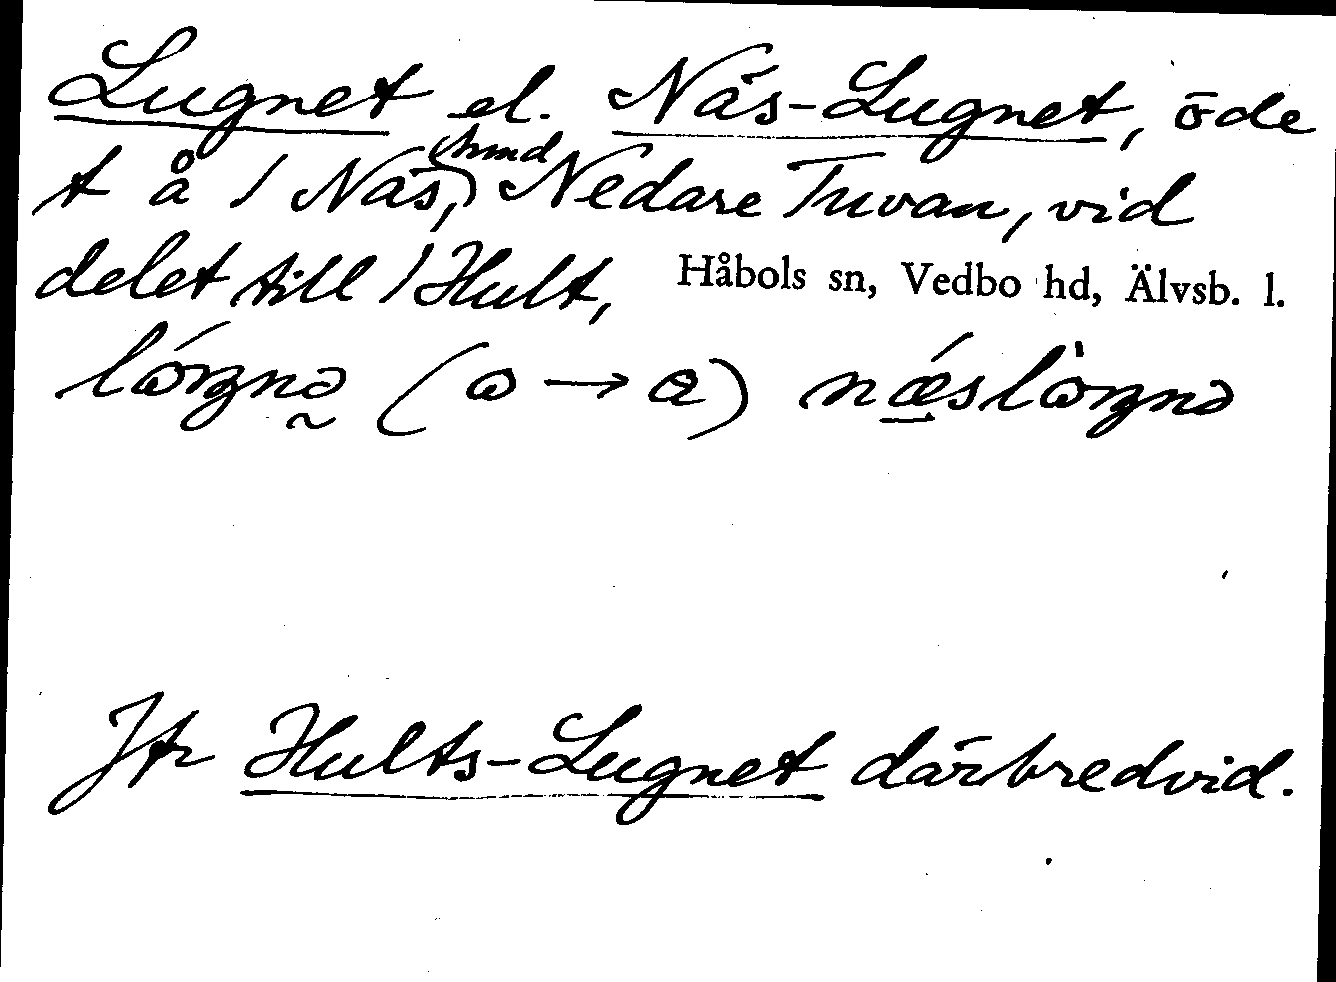 Lugnet el. Näs-Lugnet, öde
t å / Näs, (hmd) Nedare Tuvan, vid
delet till / Hult, Håbols sn, Vedbo hd, Älvsb. l.
Jfr Hults-Lugnet därbredvid.